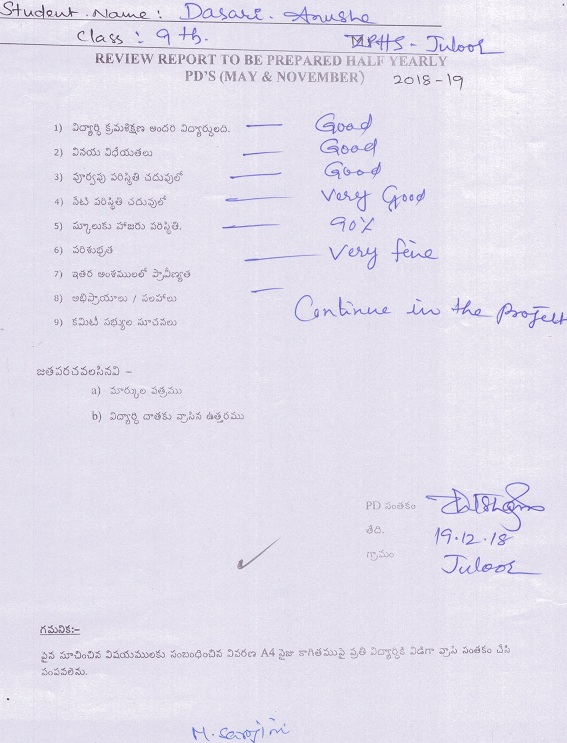 Student Name : Dasari. Anusha
Class : 9 th. ZPHS - Juloor
REVIEW REPORT TO BE PREPARED HALF YEARLY
PD'S (MAY & NOVEMBER) 2018-19
1) విద్యార్థి క్రమశిక్షణ అందరి విద్యార్థులది. — Good
2) వినయ విధేయతలు — Good
3) పూర్వపు పరిస్థితి చదువులో — Good
4) నేటి పరిస్థితి చదువులో — Very Good
5) స్కూలుకు హాజరు పరిస్థితి. — 90%
6) పరిశుభ్రత — Very fine
7) ఇతర అంశములలో ప్రావీణ్యత —
8) అభిప్రాయాలు / సలహాలు Continue in the Project
9) కమిటీ సభ్యుల సూచనలు
జతపరచవలసినవి –
a) మార్కుల పత్రము
b) విద్యార్థి దాతకు వ్రాసిన ఉత్తరము
PD సంతకం
తేది. 19.12.18
గ్రామం Juloor
గమనిక:-
పైన సూచించిన విషయములకు సంబంధించిన వివరణ A4 సైజు కాగితముపై ప్రతి విద్యార్థికి విడిగా వ్రాసి సంతకం చేసి
పంపవలెను.
M. Sarojini